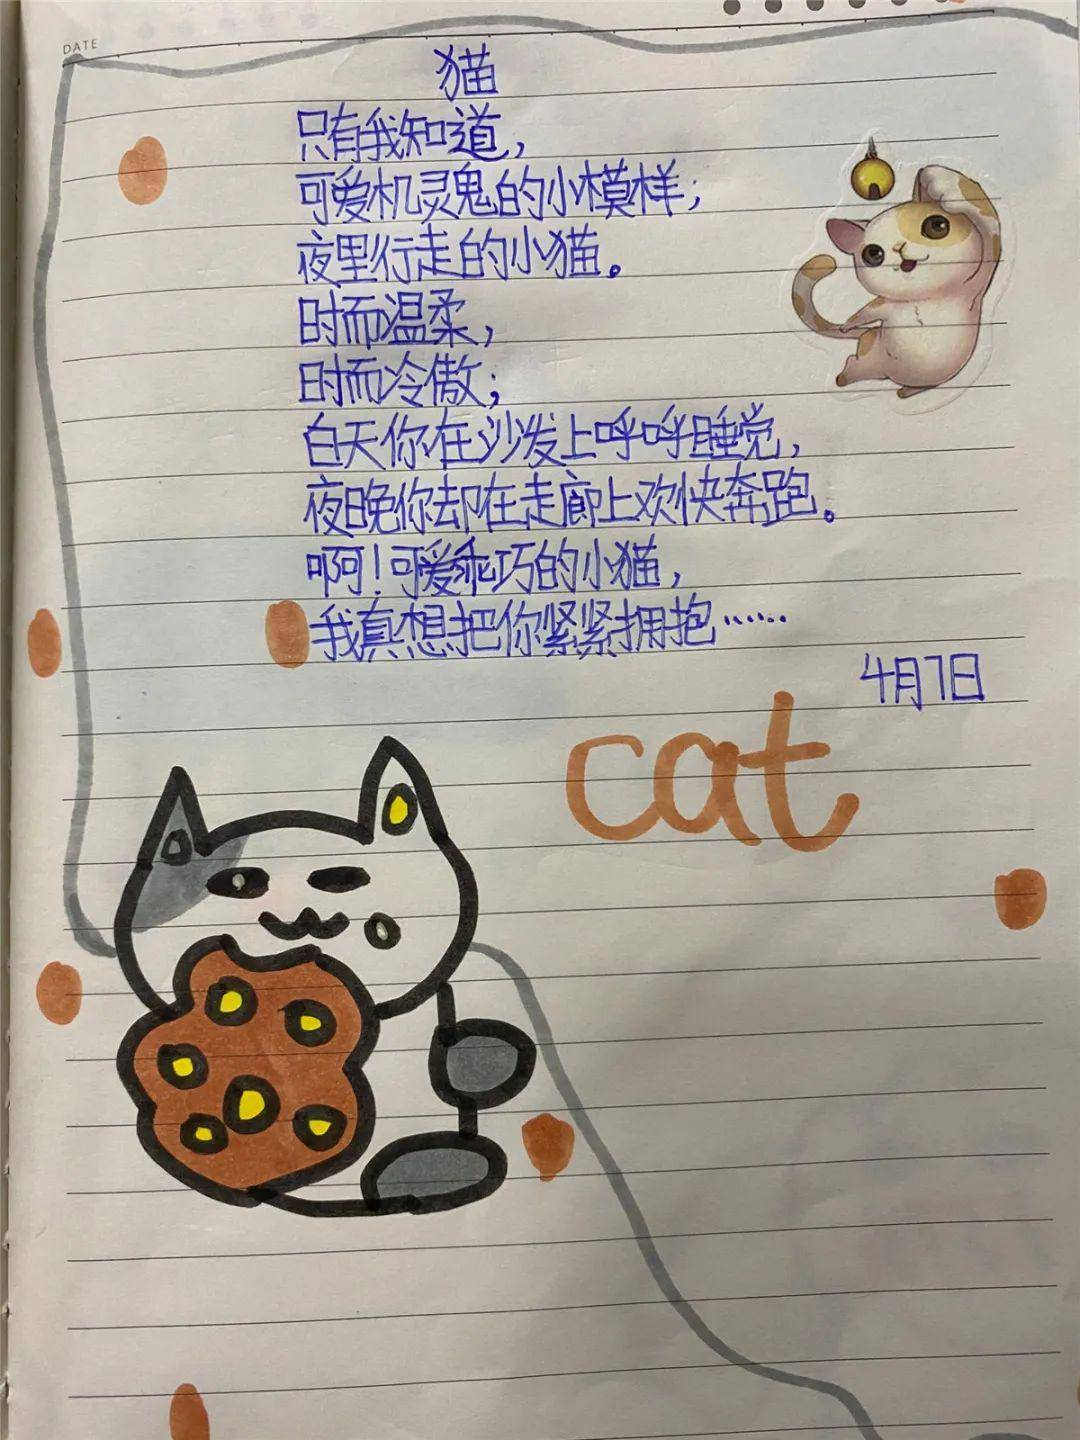 DATE
猫
只有我知道，
可爱机灵鬼的小模样；
夜里行走的小猫。
时而温柔，
时而冷傲；
白天你在沙发上呼呼睡觉，
夜晚你却在走廊上欢快奔跑。
啊！可爱乖巧的小猫，
我真想把你紧紧拥抱……
4月7日
cat